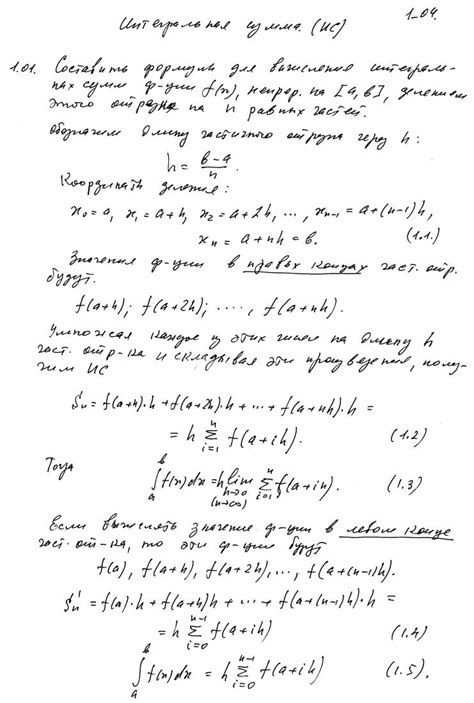 1_04.
Интегральная сумма. (ИС)
1.01. Составить формулы для вычисления интеграль-
ных сумм ф-ции f(x), непрер. на [a, b], делением
этого отрезка на n равных частей.
Обозначим длину частичного отрезка через h:
h = b-a / n.
Координаты деления:
x₀ = a, x₁ = a+h, x₂ = a+2h, ..., xₙ₋₁ = a+(n-1)h,
xₙ = a+nh = b. (1.1.)
Значения ф-ции в правых концах част. отр.
будут.
f(a+h); f(a+2h); ...., f(a+nh).
Умножая каждое из этих чисел на длину h
част. отр-ка и складывая эти произведения, полу-
чим ИС
Sₙ = f(a+h)·h + f(a+2h)·h + ... + f(a+nh)·h =
= h ∑ᵢ₌₁ⁿ f(a+ih). (1.2)
Тогда
∫ₐᵇ f(x)dx = h lim h→0 (n→∞) ∑ᵢ₌₁ⁿ f(a+ih). (1.3)
Если вычислять значение ф-ции в левом конце
част. от-ка, то эти ф-ции будут
f(a), f(a+h), f(a+2h), ..., f(a+(n-1)h).
Sₙ' = f(a)·h + f(a+h)h + ... + f(a+(n-1)h)·h =
= h ∑ᵢ₌₀ⁿ⁻¹ f(a+ih) (1.4)
∫ₐᵇ f(x)dx = h ∑ᵢ₌₀ⁿ⁻¹ f(a+ih) (1.5).